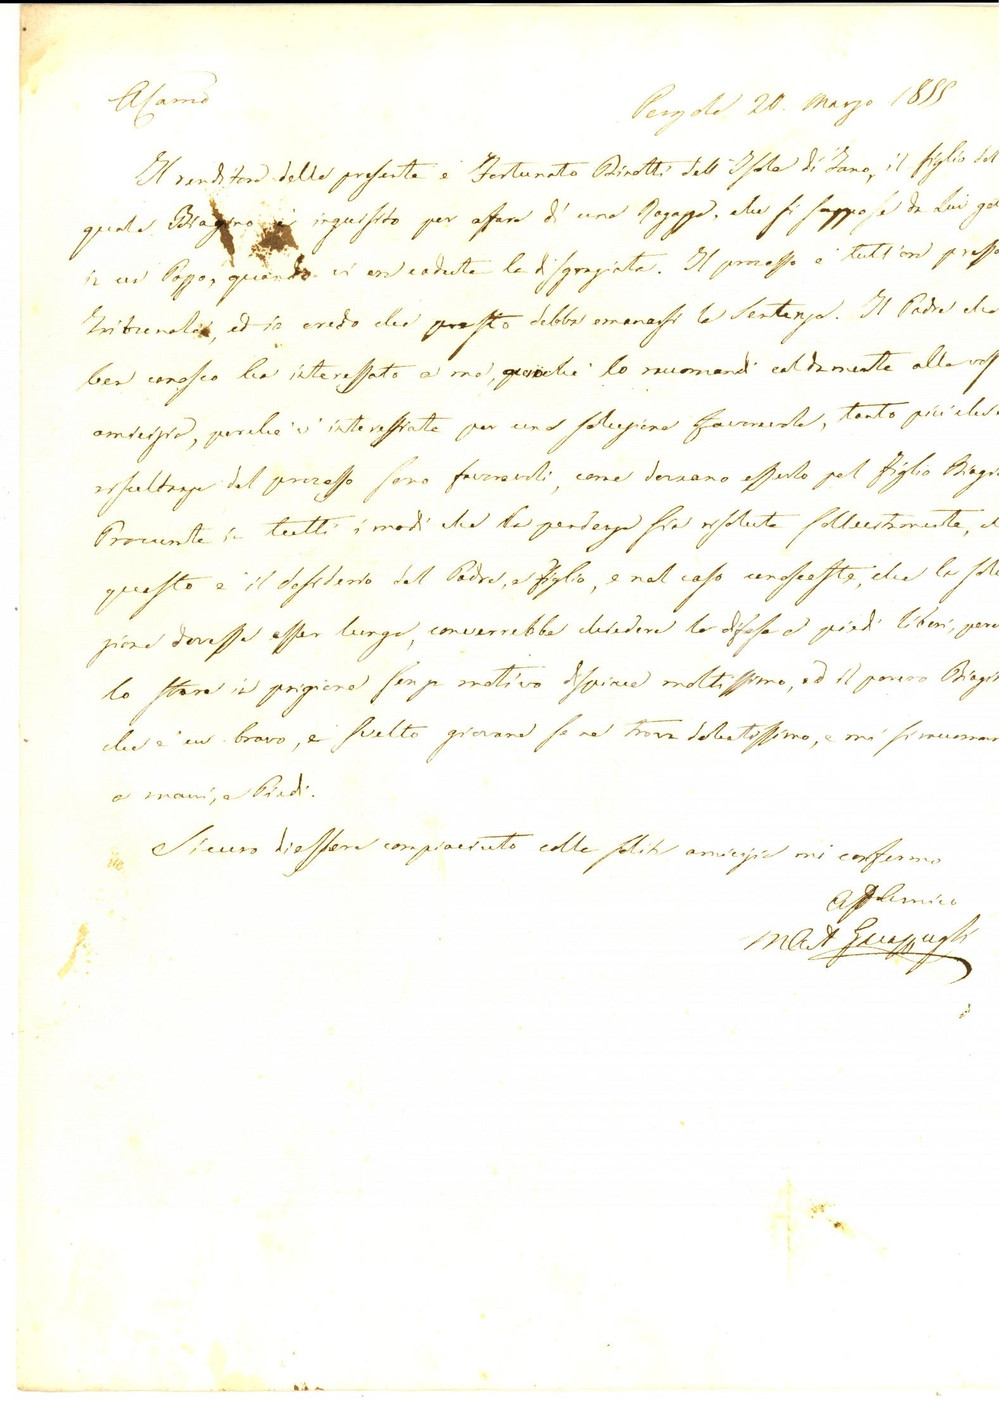 A Camo
Pergola 20. Marzo 1855
Il renditore della presente è Fortunato Binotti dell'Isola di Fano, il figlio del
quale Biagino è inquisito per affare di una Ragazza, che si suppose da Lui get
in un Pozzo, quando vi era caduta la disgraziata. Il processo è tutt'ora presso
Tribunale, ed io credo che presto debba emanarsi la Sentenza. Il Padre che
ben conosco ha interessato a me, perché lo raccomandi caldamente alla vost
amicizia, perché v'interessiate per una soluzione favorevole, tanto più che
risultanze del processo sono favorevoli, come dovranno esserlo pel figlio Biagi
Procurate in tutti i modi che la pendenza sia risoluta sollecitamente, ch
questo è il desiderio del Padre, e figlio, e nel caso conosceste, che la solu
zione dovesse esser lunga, converrebbe chiedere la difesa a piedi liberi, perc
lo stare in prigione senza motivo dispiace moltissimo, ed il povero Biagin
che è un bravo, e svelto giovane se ne trova dolentissimo, e mi si raccoman
a mani, e Piedi.
Sicuro di essere compiaciuto colla solita amicizia mi confermo
Aff Amico
M A Guazzugli